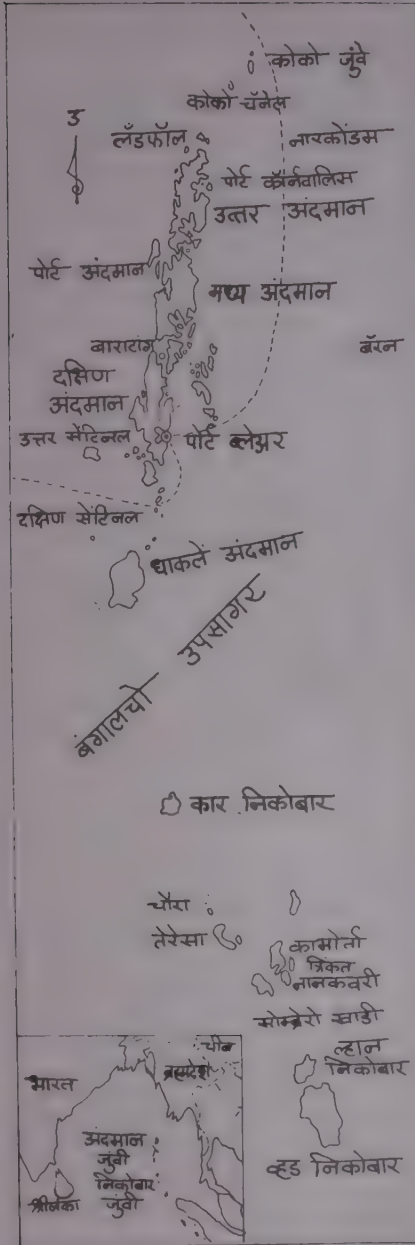 कोको जुंवे
कोको चॅनेल
उ
लँडफॉल
नारकोंडम
पोर्ट कॉर्नवालिस
उत्तर अंदमान
पोर्ट अंदमान
मध्य अंदमान
बाराटांग
बॅरन
दक्षिण
अंदमान
उत्तर सेंटिनल
पोर्ट ब्लेअर
दक्षिण सेंटिनल
धाकलें अंदमान
बंगालचो उपसागर
कार निकोबार
चौरा
तेरेसा
कामोर्ता
त्रिंकत
नानकवरी
सोम्ब्रेरो खाडी
ल्हान
निकोबार
व्हड निकोबार
चीन
ब्रह्मदेश
भारत
अंदमान
जुंवी
निकोबार
जुंवी
श्रीलंका